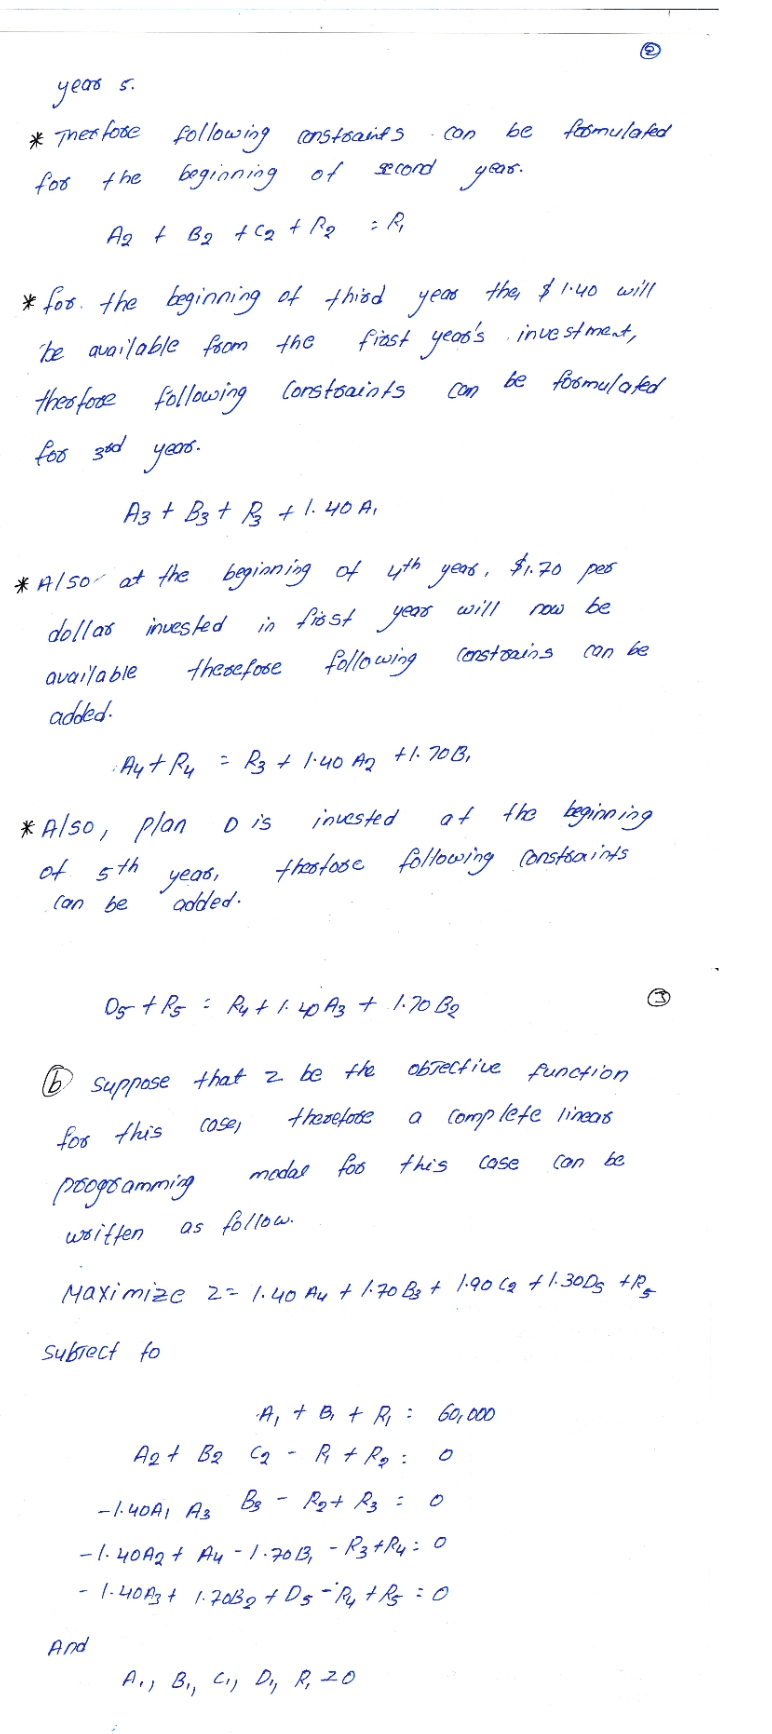 ②
year 5.
* Therfore following constraints can be formulated
for the beginning of second year.
A2 + B2 + C2 + R2 = R1
* for the beginning of third year the, $1.40 will
be available from the first year's investment,
therfore following constraints can be formulated
for 3rd year.
A3 + B3 + R3 + 1.40 A1
* Also at the beginning of 4th year, $1.70 per
dollar invested in first year will now be
available therefore following constrains can be
added.
A4 + R4 = R3 + 1.40 A2 + 1.70B1
* Also, plan D is invested at the beginning
of 5th year, therfore following constraints
can be added.
③
D5 + R5 = R4 + 1.40 A3 + 1.70 B2
ⓑ suppose that z be the objective function
for this case, therefore a complete linear
programming modal for this case can be
written as follow.
Maximize z = 1.40 A4 + 1.70 B3 + 1.90 C2 + 1.30D5 + R5
subject to
A1 + B1 + R1 = 60,000
A2 + B2 C2 - R1 + R2 = 0
-1.40A1 A3 B3 - R2 + R3 = 0
-1.40A2 + A4 - 1.70B1 - R3 + R4 = 0
- 1.40A3 + 1.70B2 + D5 - R4 + R5 = 0
And
A1, B1, C1, D1, R1 ≥ 0